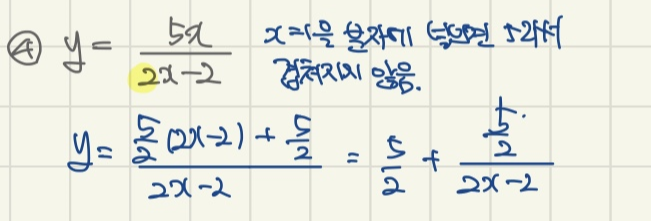 ④ y = 5x / (2x-2) x=1을 분자에 넣으면 5라서
겹쳐지지 않음.
y = (5/2 (2x-2) + 5/2) / (2x-2) = 5/2 + (5/2) / (2x-2)